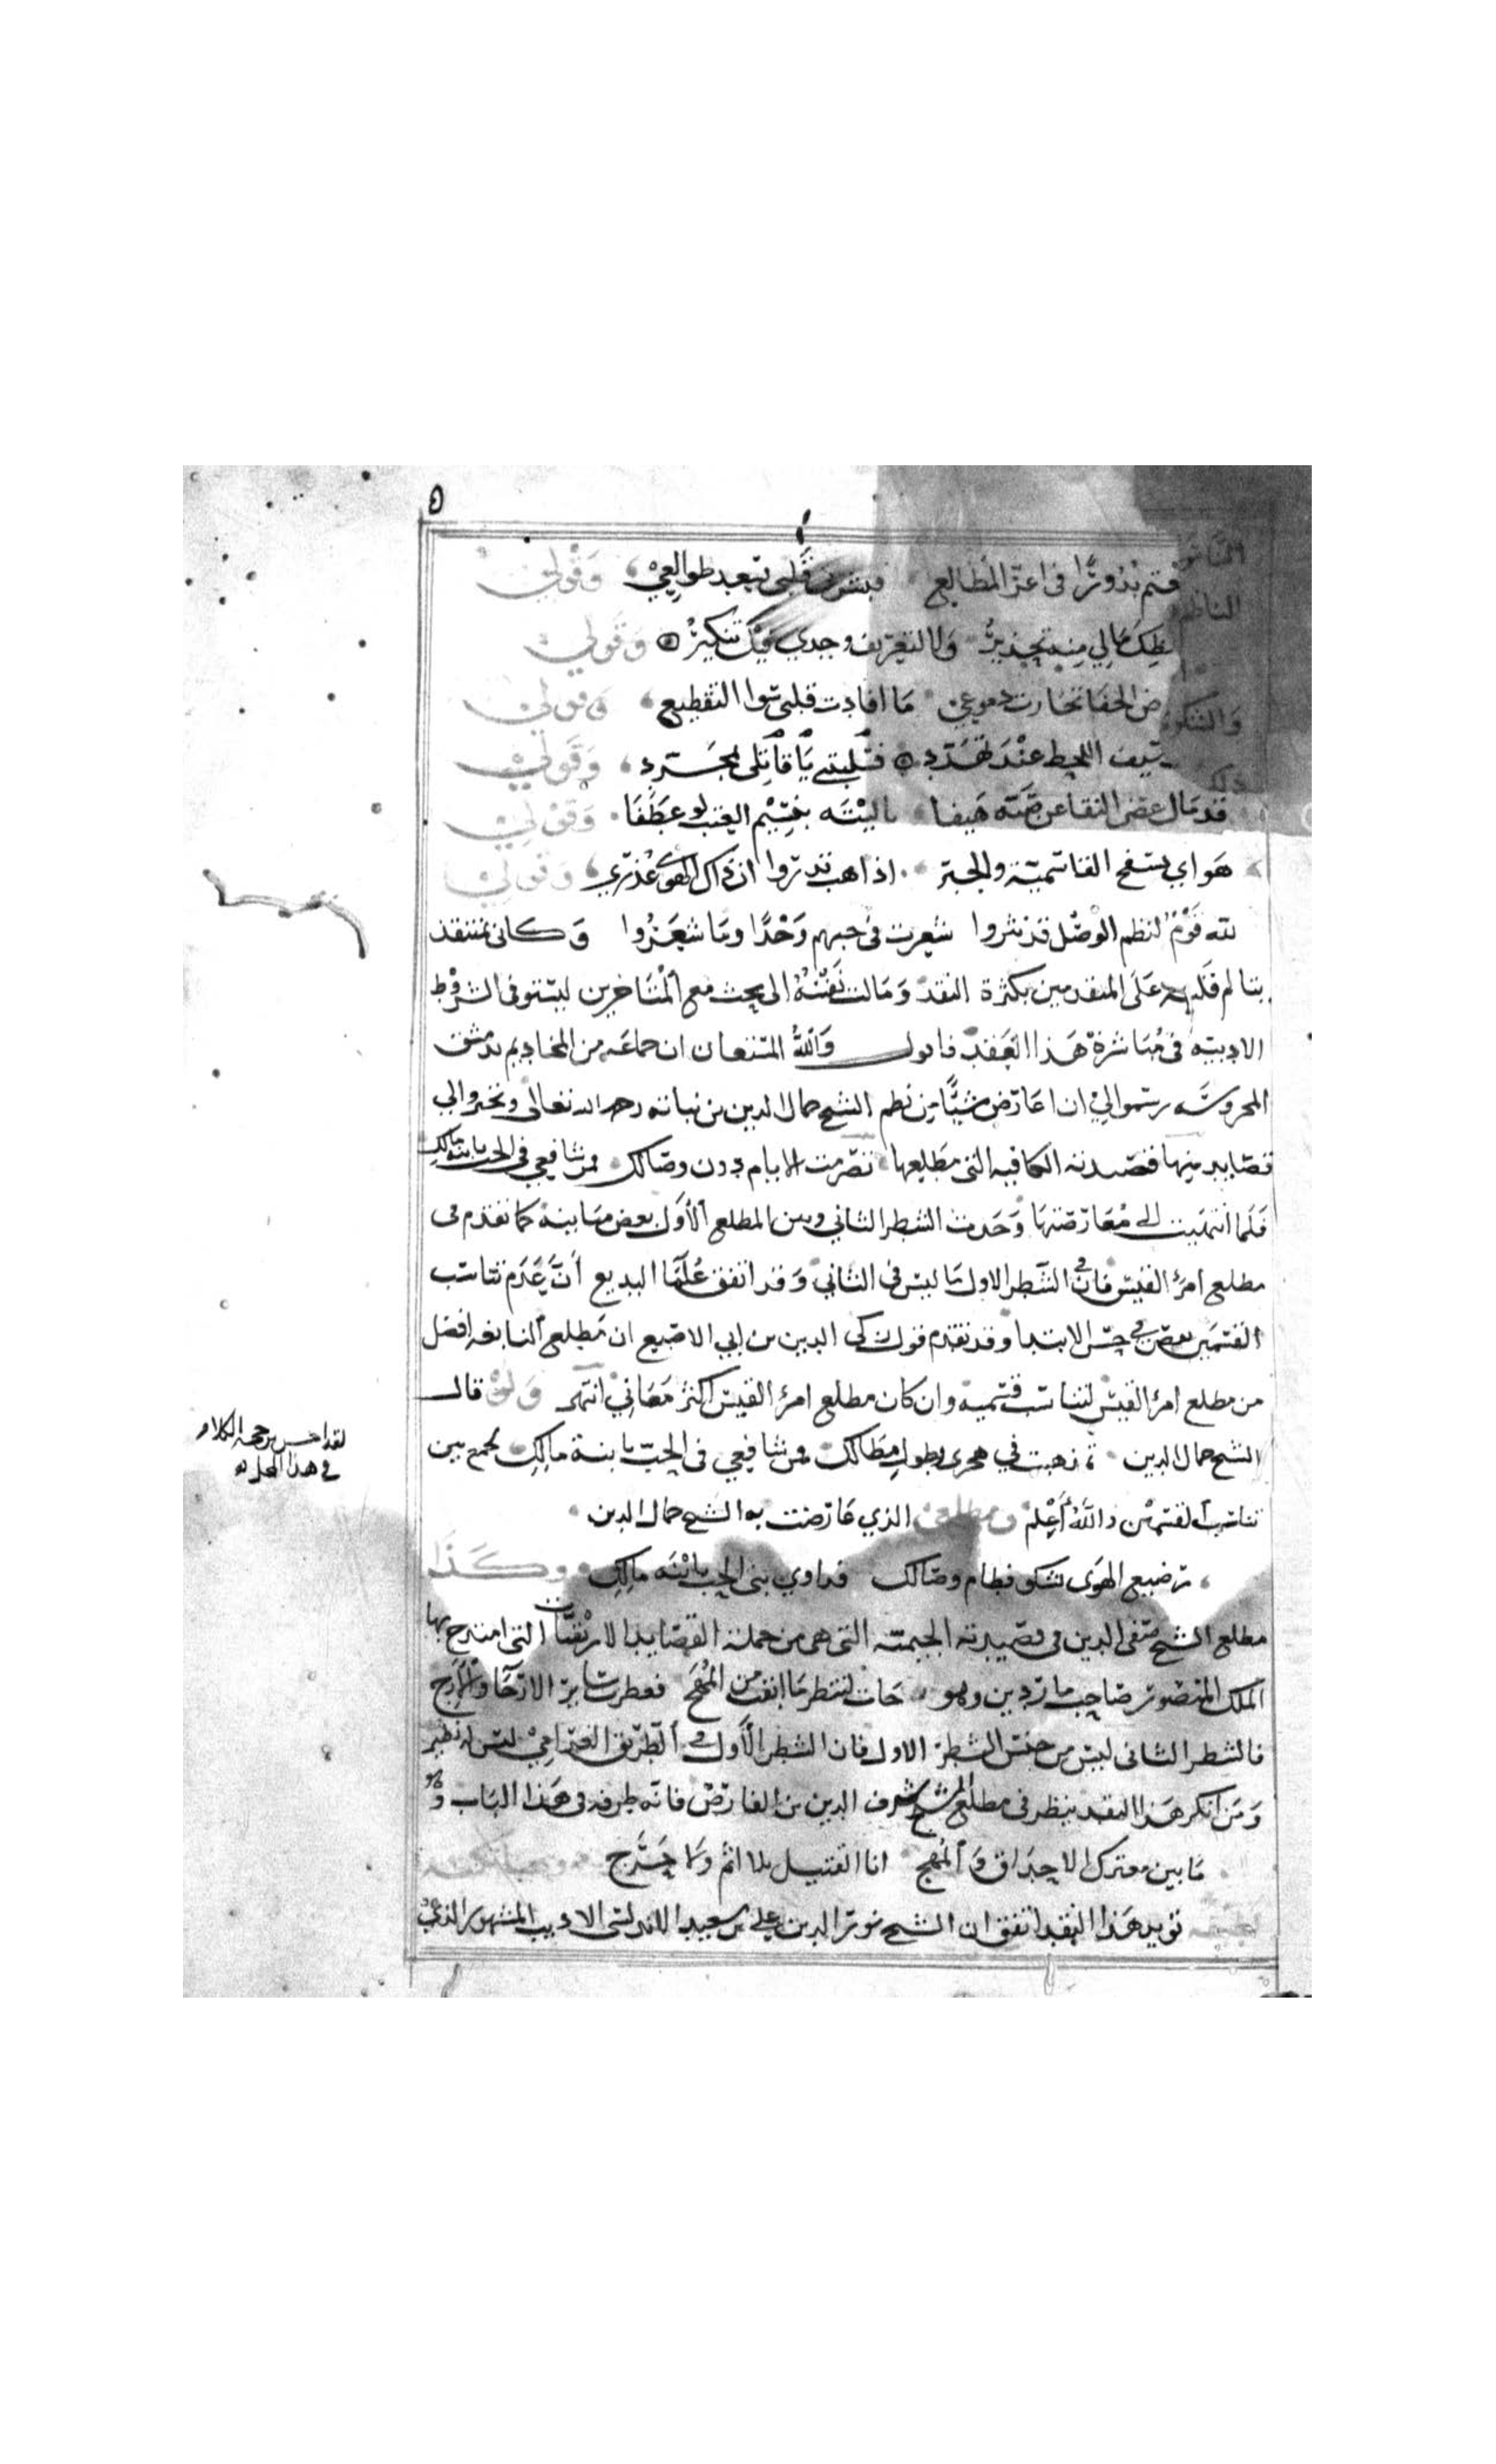 ٥
فتم بدورًا في اعز المطالع فبشرت قلبي بسعد طوالعي وقولي
مالي منه تحذير ولا لتعريف وجدي فيك تنكير وقولي
الجفا تجارت دموعي ما افادت قلبي سوا التقطيع وقولي
سيف اللحظ عند تجرد قتلتني يا قاتلي بمجرد وقولي
قد مال غصن النقا عن صبه هيفا ياليته بنسيم العتب لو عطفا وقولي
هواي بسفح القاسمية والجسر اذا هب ندروا ان ذاك الهوى عذري وقولي
لله قوم لنظم الوصل قد نثروا شعرت في حبهم وجدًا وما شعروا وكاني بمنتقد
لم على المتقدمين بكثرة النقد ومالت نفسه الى بحث مع المتاخرين ليستوفي الشروط
الادبيه في مباشرة هذا العقد فاقول والله المستعان ان جماعه من المخاديم بدمشق
المحروسة رسموا لي ان اعارض شيًا من نظم الشيخ جمال الدين بن نباته رحمه الله تعالى وتخيروا لي
قصايد منها قصيدته الكافيه التي مطلعها تصرمت الايام دون وصالك فمن شافعي في الحب يابنة مالك
فلما انتهيت الى معارضتها وجدت الشطر الثاني وبين المطلع الاول بعض مباينة كما تقدم في
مطلع امرئ القيس فان في الشطر الاول ما ليس في الثاني وقد اتفق علما البديع ان عدم تناسب
القسمين نقص في حسن الابتدا وقد تقدم قول زكي الدين بن ابي الاصبع ان مطلع النابغه افضل
من مطلع امرئ القيس لتناسب قسميه وان كان مطلع امرئ القيس اكثر معاني انتهى ولو قال
الشيخ جمال الدين ذهبت في هجري بطول مطالك فمن شافعي في الحب يابنة مالك لجمع بين
تناسب القسمين والله أعلم ومطلعي الذي عارضت به الشيخ جمال الدين
رضيع الهوى يشكو فطام وصالك فداوي بني الحب يابنة مالك وكذا
مطلع الشيخ صفي الدين في قصيدته الجيمية التي هي من جملة القصايد الارتقيات التي امتدح بها
الملك المنصور صاحب ماردين وهو جات لتنظر ما ابقت من المهج فعطرت ساير الارجا والارج
فالشطر الثاني ليس من جنس الشطر الاول فان الشطر الأول في الطريق الغرامي ليس له نظير
ومن انكر هذا النقد ينظر في مطلع الشيخ شرف الدين بن الفارض فانه طرفه في هذا الباب وهو
ما بين معترك الاحداق والمهج انا القتيل بلا اثم ولا حرج
تويد هذا النقد اتفق ان الشيخ نور الدين علي بن سعيد الاندلسي الاديب المشهور الذي
لقد احسن بن حجه الكلام
في هذا المحل